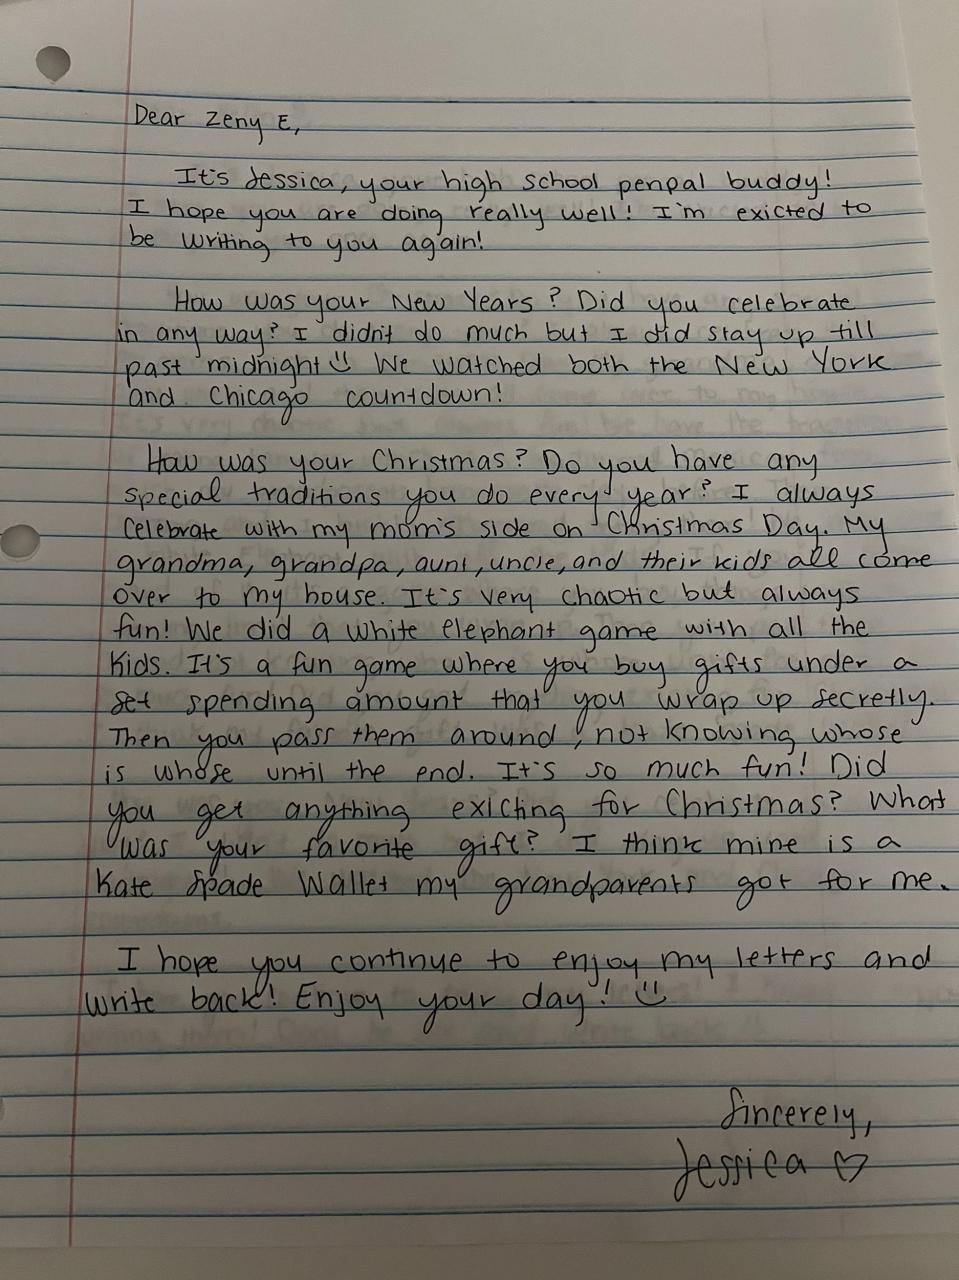 Dear Zeny E,
It's Jessica, your high school penpal buddy!
I hope you are doing really well! I'm exicted to
be writing to you again!
How was your New Years? Did you celebrate
in any way? I didn't do much but I did stay up till
past midnight☺ We watched both the New York
and Chicago countdown!
How was your Christmas? Do you have any
special traditions you do every year? I always
celebrate with my mom's side on Christmas Day. My
grandma, grandpa, aunt, uncle, and their kids all come
over to my house. It's very chaotic but always
fun! We did a white elephant game with all the
kids. It's a fun game where you buy gifts under a
set spending amount that you wrap up secretly.
Then you pass them around, not knowing whose
is whose until the end. It's so much fun! Did
you get anything exicting for Christmas? What
was your favorite gift? I think mine is a
Kate Spade Wallet my grandparents got for me.
I hope you continue to enjoy my letters and
write back! Enjoy your day! ☺
Sincerely,
Jessica ♡